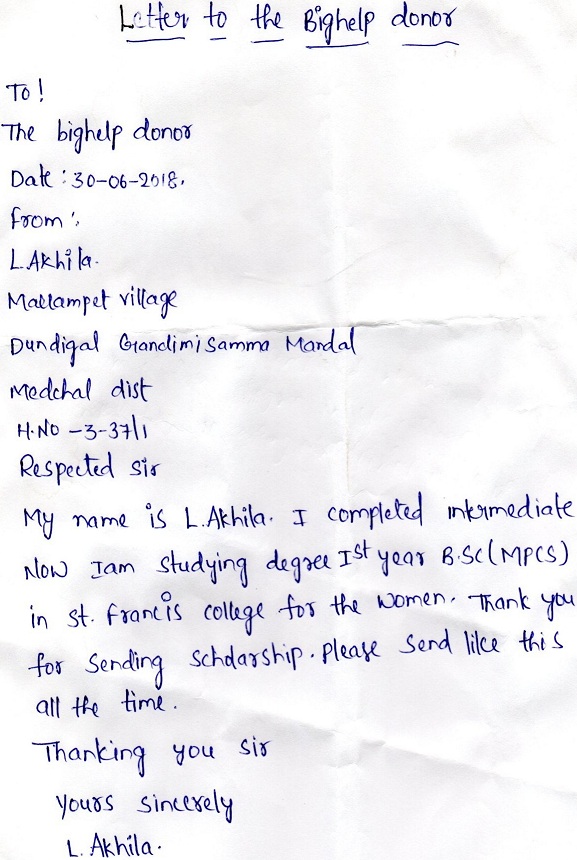 Letter to the Bighelp donor
To!
The bighelp donor
Date : 30-06-2018.
from :
L.Akhila.
Mallampet village
Dundigal Gandimisamma Mandal
Medchal dist
H.NO -3-37/1
Respected sir
My name is L.Akhila. I completed intermediate
Now Iam studying degree Ist year B.SC(MPCS)
in St. francis college for the women. Thank you
for sending scholarship. please send like this
all the time.
Thanking you sir
yours sincerely
L. Akhila.